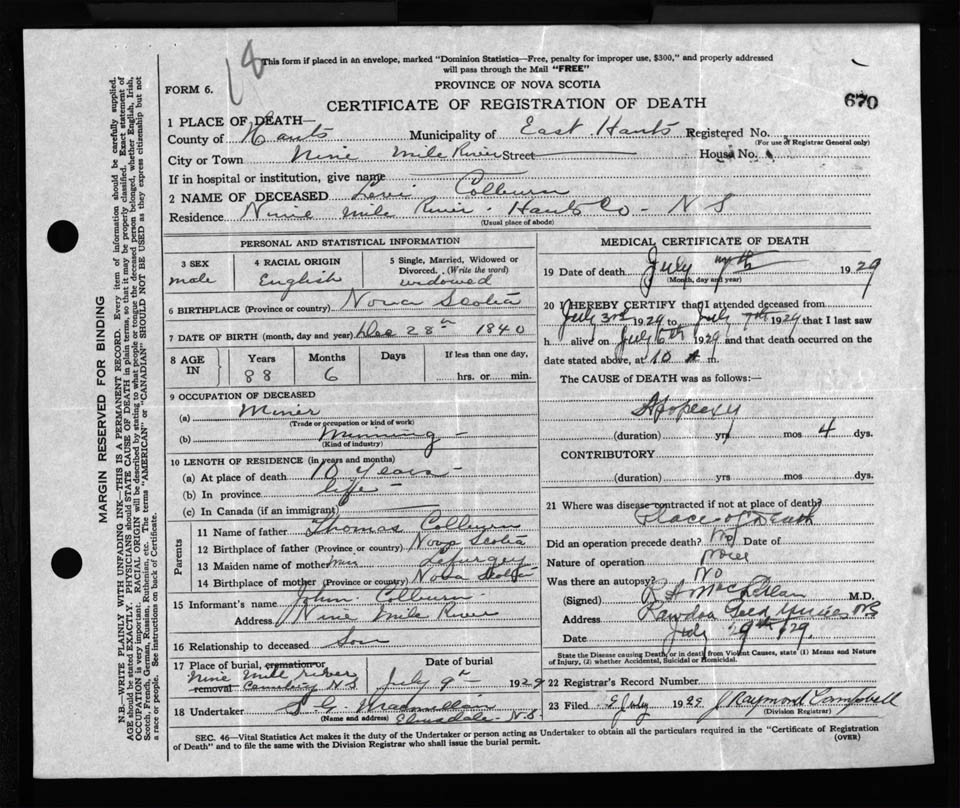 This form if placed in an envelope, marked "Dominion Statistics—Free, penalty for improper use, $300," and properly addressed
will pass through the Mail "FREE"
FORM 6.
PROVINCE OF NOVA SCOTIA
CERTIFICATE OF REGISTRATION OF DEATH
670
1 PLACE OF DEATH—
County of Hants Municipality of East Hants Registered No.
(For use of Registrar General only)
City or Town Nine Mile River Street House No.
If in hospital or institution, give name
2 NAME OF DECEASED Levi Colburn
Residence Nine Mile River. Hants Co - N S
(Usual place of abode)
PERSONAL AND STATISTICAL INFORMATION
3 SEX
male
4 RACIAL ORIGIN
English
5 Single, Married, Widowed or
Divorced. (Write the word)
widowed
6 BIRTHPLACE (Province or country) Nova Scotia
7 DATE OF BIRTH (month, day and year) Dec 28th 1840
8 AGE IN
Years Months Days If less than one day,
88 6 hrs. or min.
9 OCCUPATION OF DECEASED
(a) Miner
(Trade or occupation or kind of work)
(b) Minning
(Kind of industry)
10 LENGTH OF RESIDENCE (in years and months)
(a) At place of death 10 Years
(b) In province life
(c) In Canada (if an immigrant)
Parents
11 Name of father Thomas Colburn
12 Birthplace of father (Province or country) Nova Scotia
13 Maiden name of mother Lefurgey
14 Birthplace of mother (Province or country) Nova Scotia
15 Informant's name John Colburn
Address Nine Mile River
16 Relationship to deceased Son
17 Place of burial, cremation or
Nine Mile River
removal Cemetery N S
Date of burial
July 9th 1929
18 Undertaker S G Macmillan
(Name and address) Elmsdale N.S
MEDICAL CERTIFICATE OF DEATH
19 Date of death July 7th 1929
(Month, day and year)
20 I HEREBY CERTIFY that I attended deceased from
July 3rd 1929 to July 7th 1929 that I last saw
h alive on July 6th 1929 and that death occurred on the
date stated above, at 10 m.
The CAUSE OF DEATH was as follows:—
Apoplexy
(duration) yrs mos 4 dys.
CONTRIBUTORY
(duration) yrs mos dys.
21 Where was disease contracted if not at place of death?
Place of Death
Did an operation precede death? No Date of
Nature of operation None
Was there an autopsy? No
(Signed) R A MacLellan M.D.
Address Rawdon Gold Mines NS
Date July 29th /29.
State the Disease causing Death, or in death from Violent Causes, state (1) Means and Nature
of Injury, (2) whether Accidental, Suicidal or Homicidal.
22 Registrar's Record Number
23 Filed 9 July 1929 J Raymond Campbell
(Division Registrar)
SEC. 46—Vital Statistics Act makes it the duty of the Undertaker or person acting as Undertaker to obtain all the particulars required in the "Certificate of Registration
of Death" and to file the same with the Division Registrar who shall issue the burial permit.
(OVER)
MARGIN RESERVED FOR BINDING
N.B.—WRITE PLAINLY WITH UNFADING INK—THIS IS A PERMANENT RECORD. Every item of information should be carefully supplied.
AGE should be stated EXACTLY. PHYSICIANS should STATE CAUSE OF DEATH in plain terms, so that it may be properly classified. Exact statement of
OCCUPATION is very important. RACIAL ORIGIN will be described by stating to what people or tongue the deceased person belonged, whether English, Irish,
Scotch, French, German, Russian, Ruthenian, etc. The terms "AMERICAN" or "CANADIAN" SHOULD NOT BE USED as they express citizenship but not
a race or people. See instructions on back of Certificate.